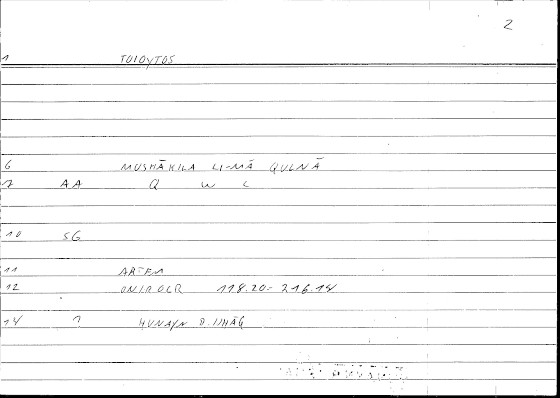 2
1 TOIOYTOS
6 MUSHĀKILA LI-MĀ QULNĀ
7 AA Q W L
10 SG
11 ARTEM
12 ONIROCR 118.20-216.14
14 ? HUNAYN B.ISHĀQ